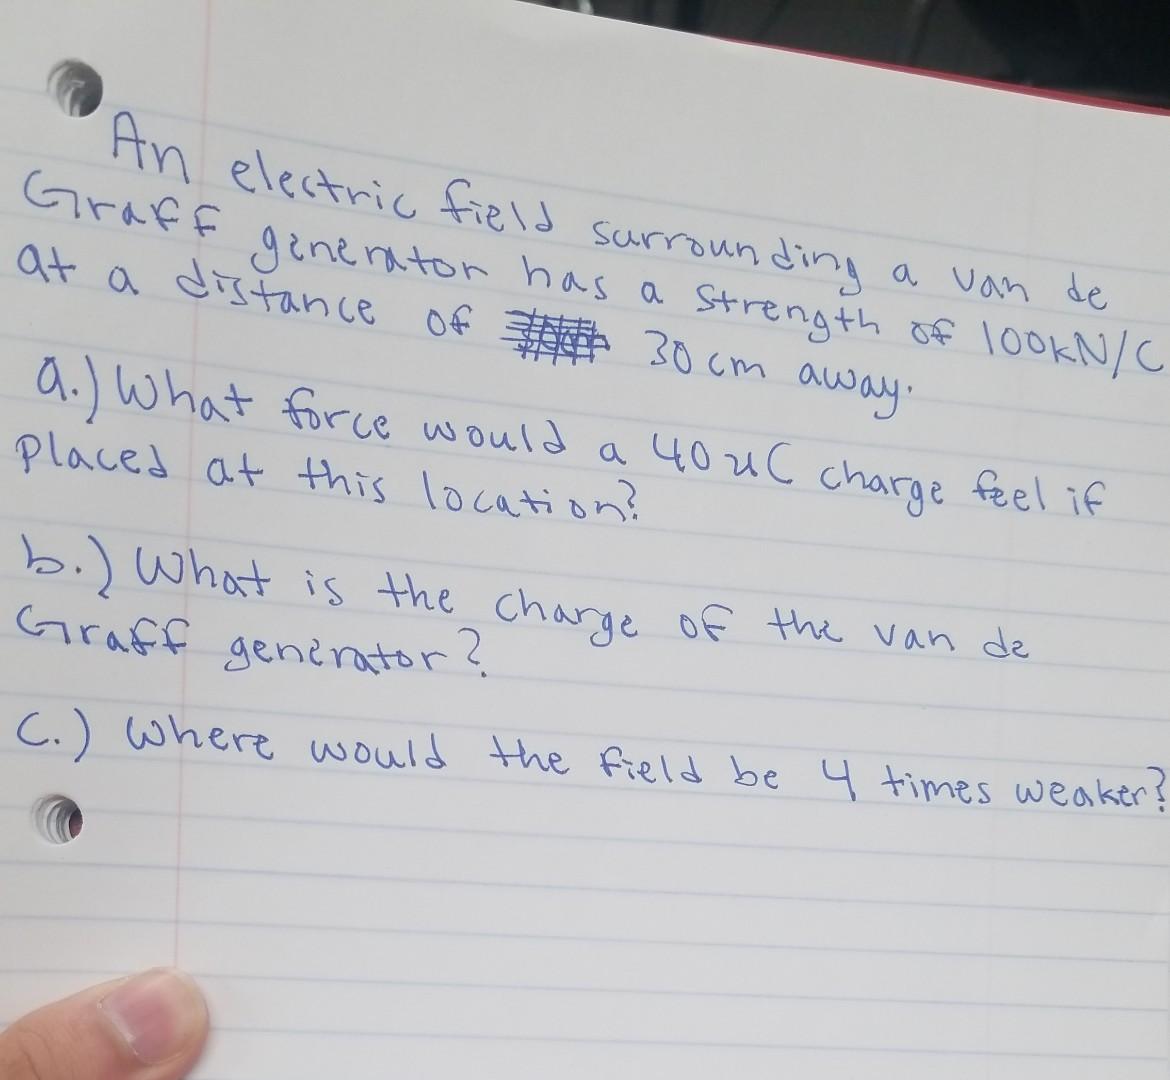 An electric field surrounding a van de
Graff generator has a strength of 100kN/C
at a distance of 30 cm away.
a.) What force would a 40 uC charge feel if
placed at this location?
b.) What is the charge of the van de
Graff generator?
C.) Where would the field be 4 times weaker?